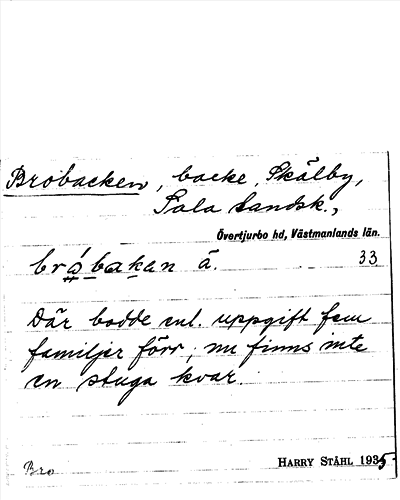 Brobacken, backe, Skälby,
Sala landsk.,
Övertjurbo hd, Västmanlands län.
bró̤bakan ä. 33
Där bodde enl. uppgift fem
familjer förr; nu finns inte
en stuga kvar.
Bro HARRY STÅHL 1935